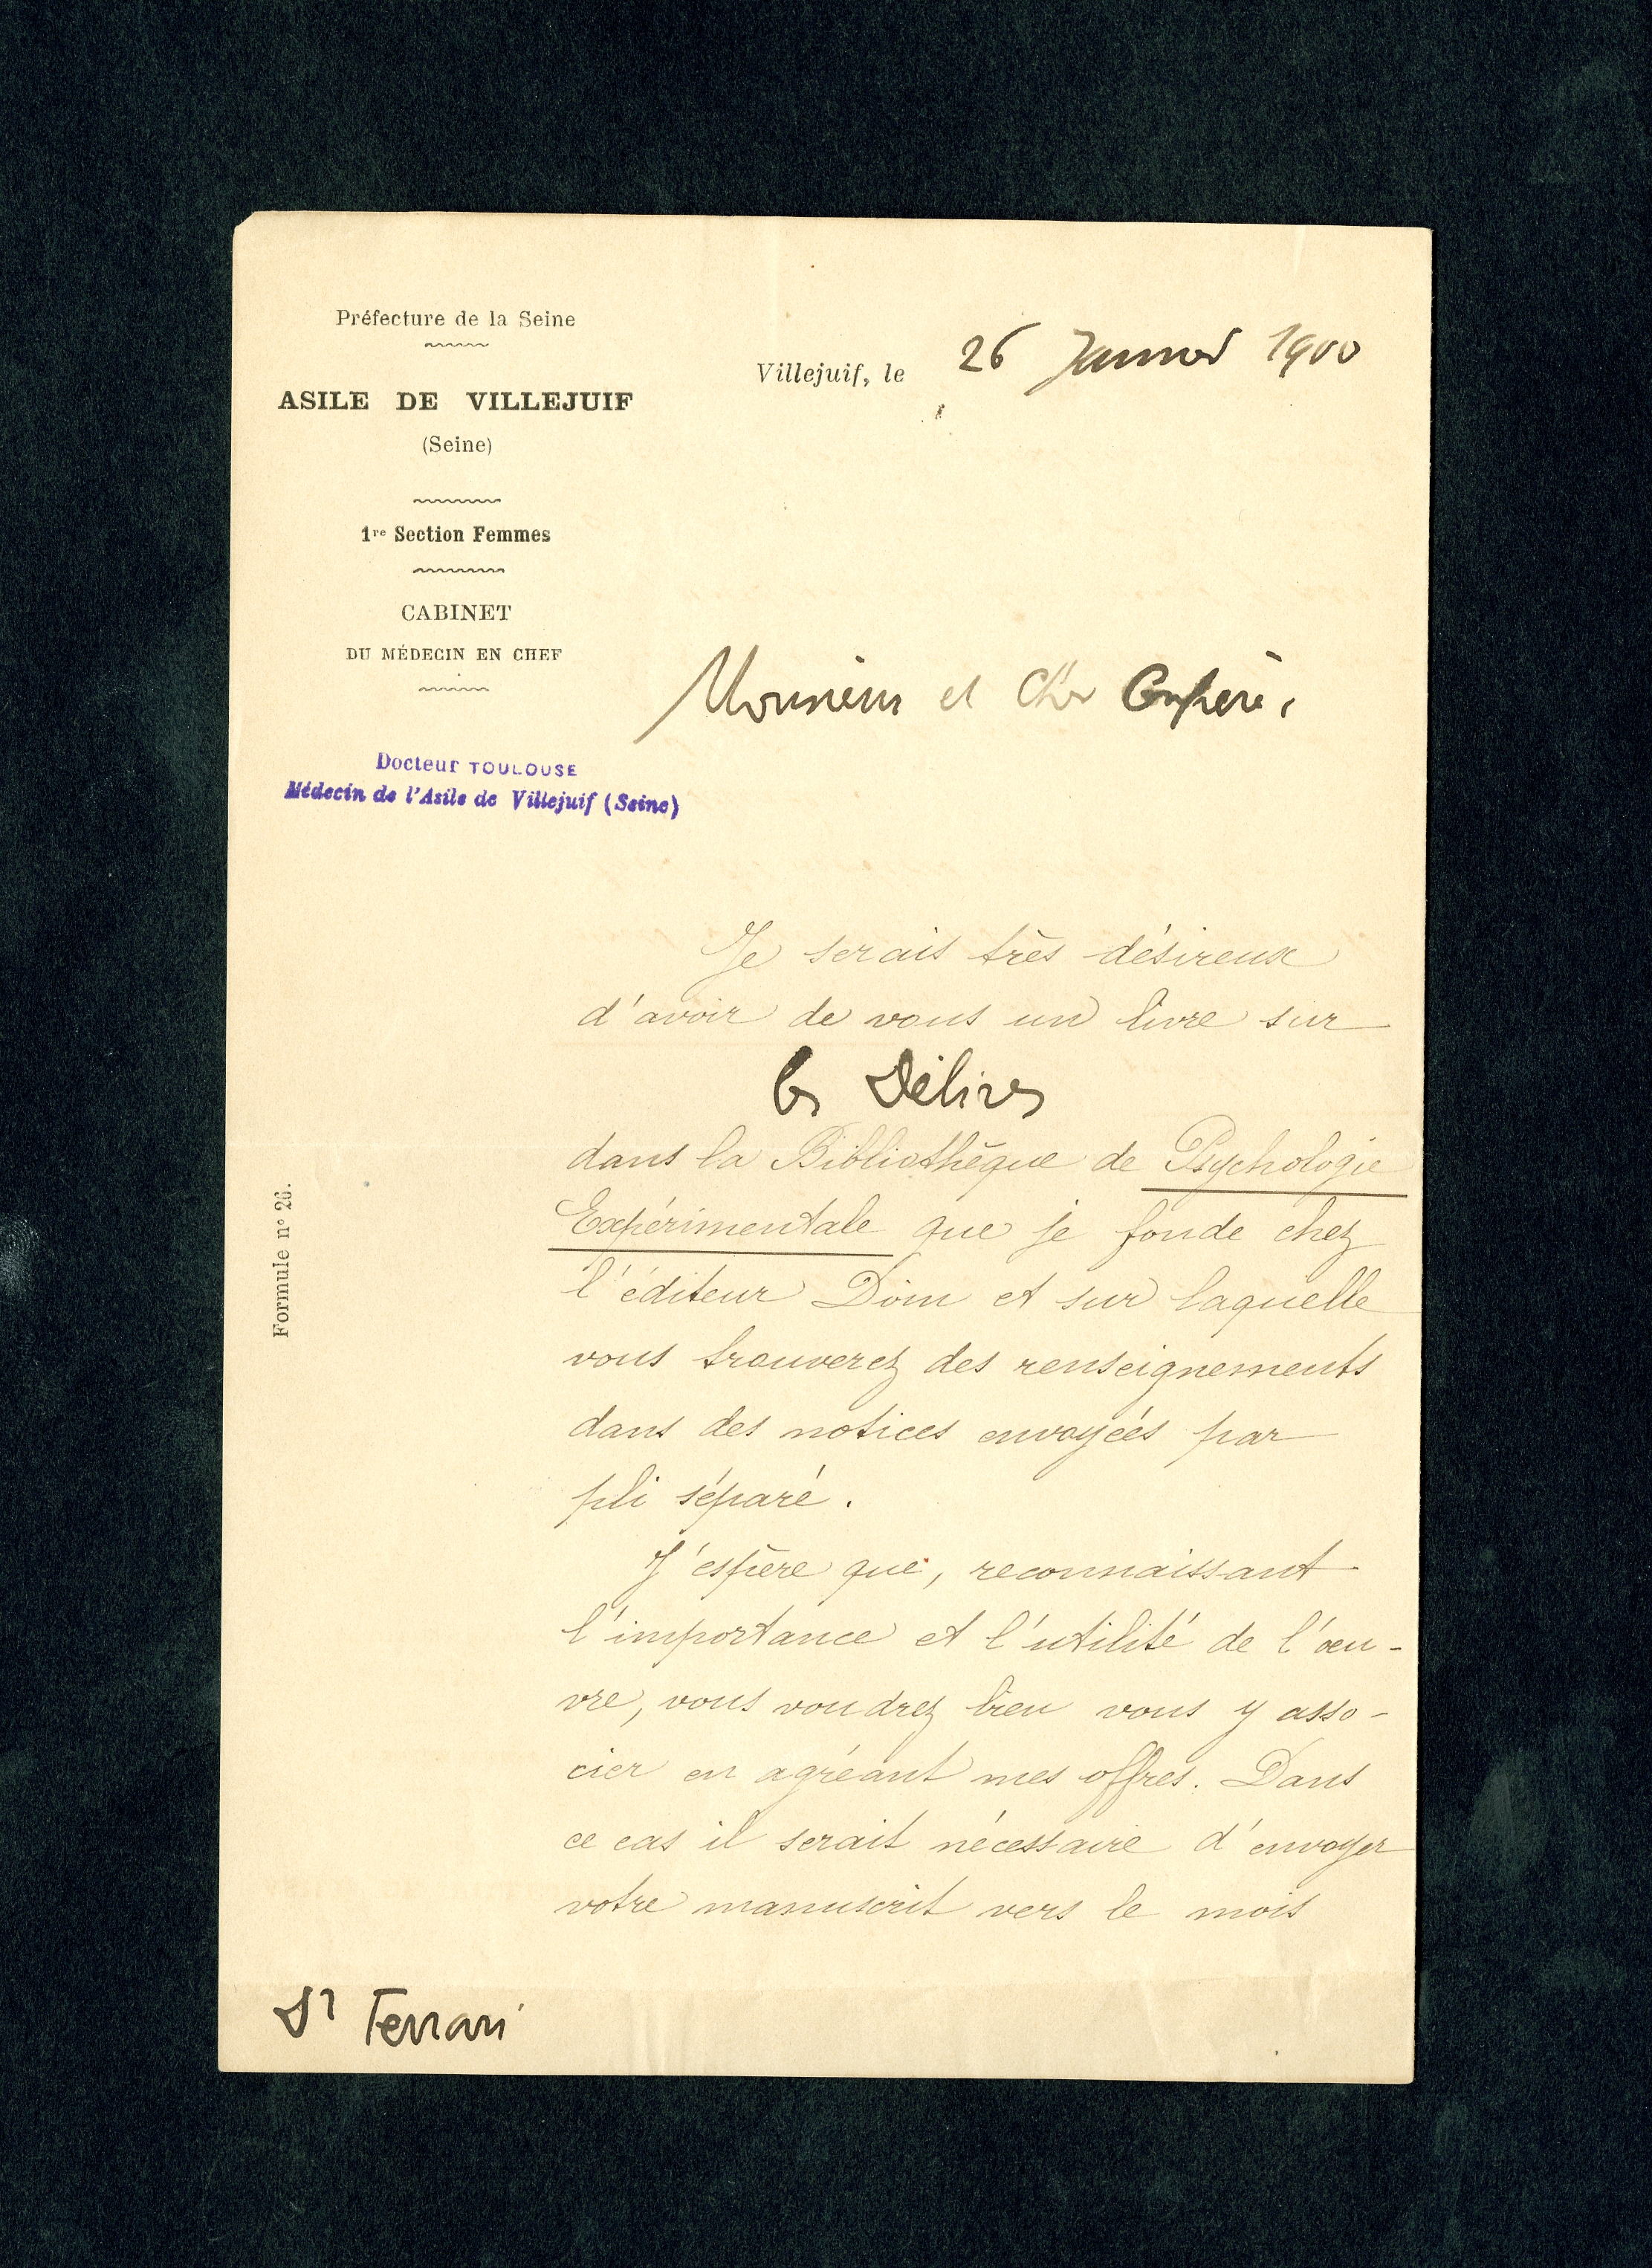 Préfecture de la Seine
ASILE DE VILLEJUIF
(Seine)
1re Section Femmes
CABINET
DU MÉDECIN EN CHEF
Docteur TOULOUSE
Médecin de l'Asile de Villejuif (Seine)
Villejuif, le 26 Janvier 1900
Monsieur et Cher Confrère,
Je serais très désireux
d'avoir de vous un livre sur
les Délires
dans la Bibliothèque de Psychologie
Expérimentale que je fonde chez
l'éditeur Doin et sur laquelle
vous trouverez des renseignements
dans des notices envoyées par
pli séparé.
J'espère que, reconnaissant
l'importance et l'utilité de l'œu-
vre, vous voudrez bien vous y asso-
cier en agréant mes offres. Dans
ce cas il serait nécessaire d'envoyer
votre manuscrit vers le mois
Dr Ferrari
Formule n° 26.